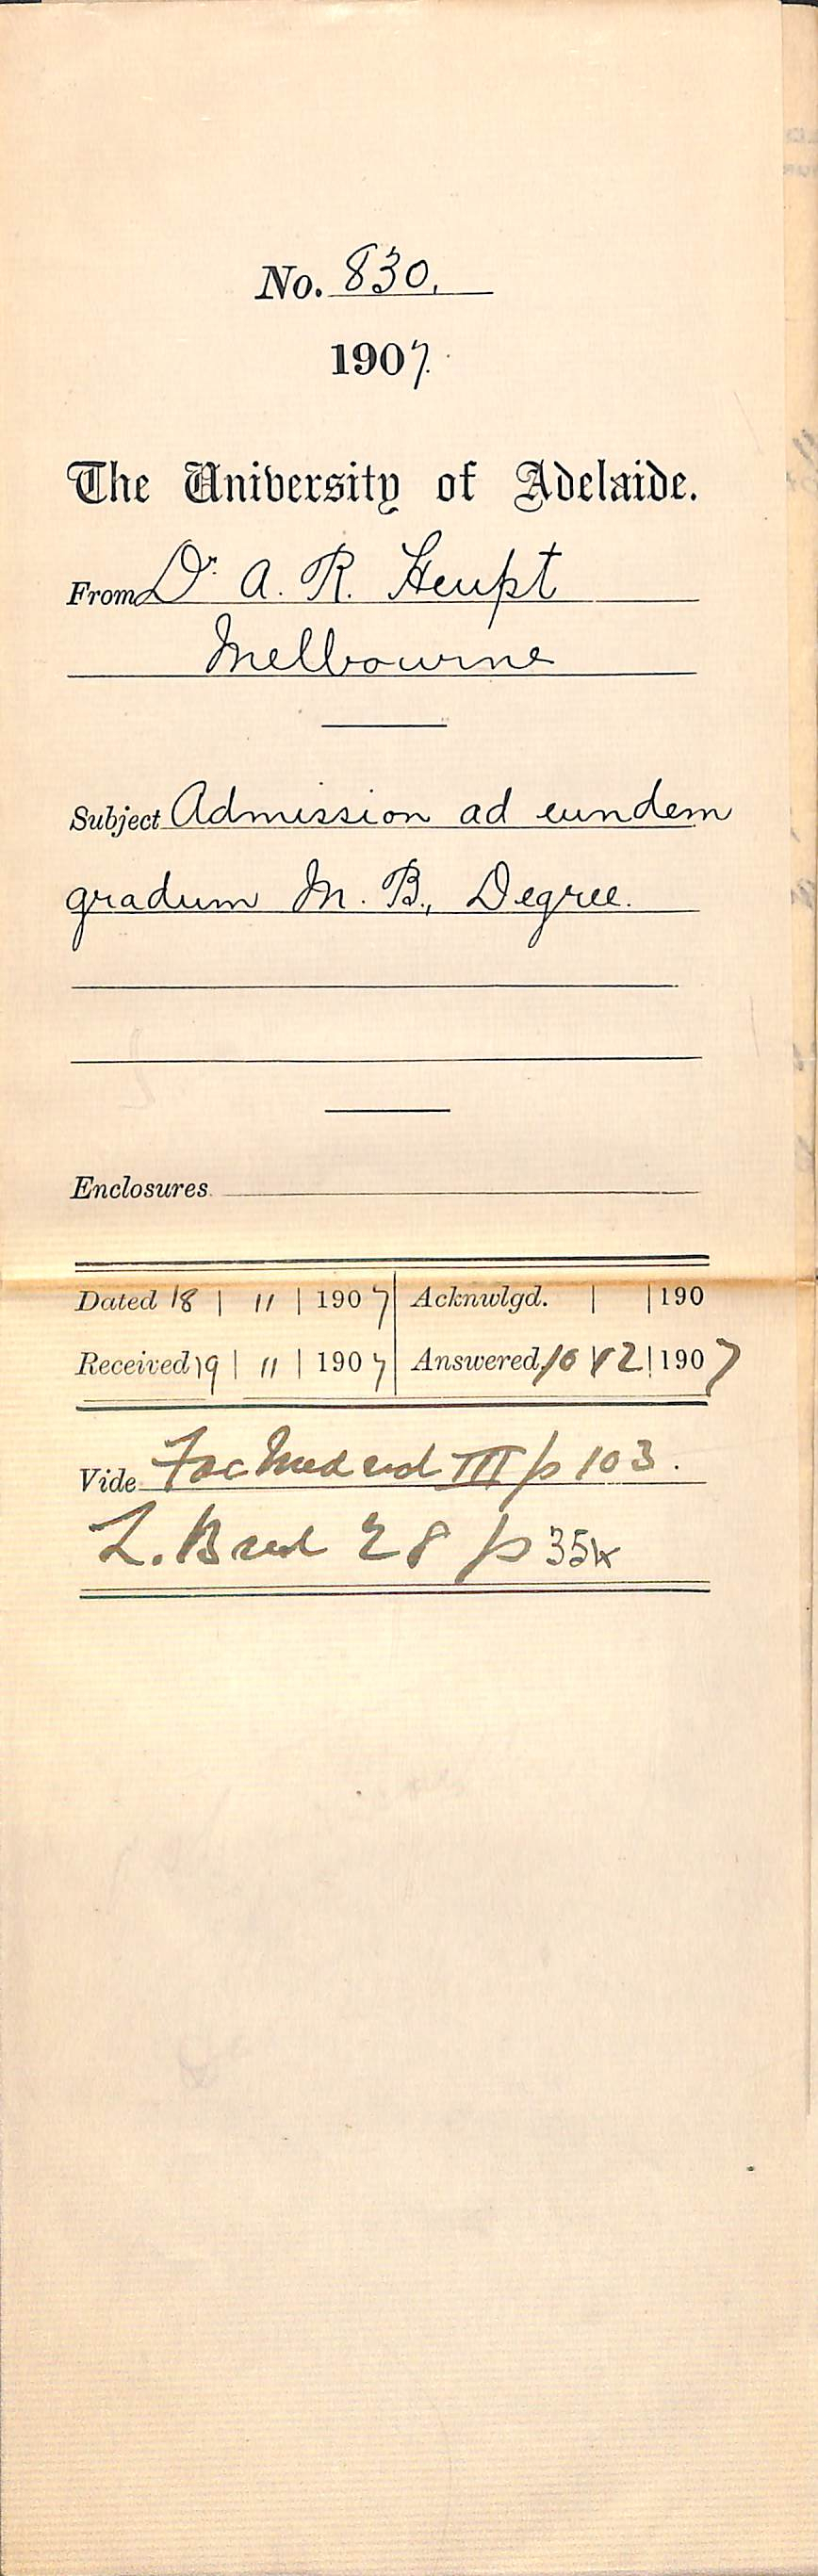 No. 830.
1907.
The University of Adelaide.
From Dr. A. R. Haupt
Melbourne
Subject Admission ad eundem
gradum M. B., Degree.
Enclosures
Dated 18 | 11 | 1907 Acknwlgd. | | 190
Received 19 | 11 | 1907 Answered 10 | 12 | 1907
Vide Fac Med vol III p 103.
L. B 28 p 354